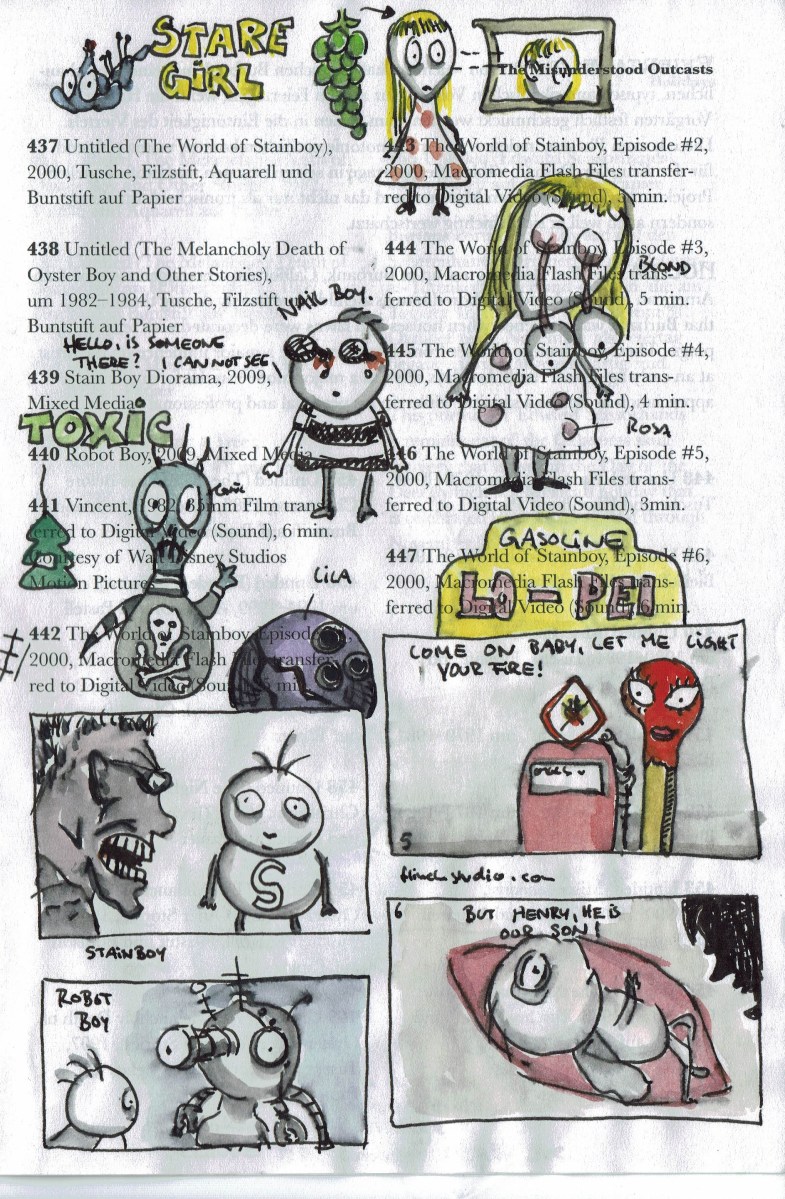 STARE
GIRL
The Misunderstood Outcasts
437 Untitled (The World of Stainboy),
2000, Tusche, Filzstift, Aquarell und
Buntstift auf Papier
438 Untitled (The Melancholy Death of
Oyster Boy and Other Stories),
um 1982–1984, Tusche, Filzstift und
Buntstift auf Papier
NAIL BOY.
HELLO, IS SOMEONE
THERE? I CAN NOT SEE
439 Stain Boy Diorama, 2009,
Mixed Media
TOXIC
440 Robot Boy, 2009, Mixed Media
441 Vincent, 1982, 35mm Film trans-
ferred to Digital Video (Sound), 6 min.
Courtesy of Walt Disney Studios
Motion Pictures
LILA
442 The World of Stainboy, Episode #1,
2000, Macromedia Flash Files transfer-
red to Digital Video (Sound), 5 min.
S
STAINBOY
ROBOT
BOY
443 The World of Stainboy, Episode #2,
2000, Macromedia Flash Files transfer-
red to Digital Video (Sound), 5 min.
444 The World of Stainboy, Episode #3,
2000, Macromedia Flash Files trans-
ferred to Digital Video (Sound), 5 min.
BLOND
445 The World of Stainboy, Episode #4,
2000, Macromedia Flash Files trans-
ferred to Digital Video (Sound), 4 min.
ROSA
446 The World of Stainboy, Episode #5,
2000, Macromedia Flash Files trans-
ferred to Digital Video (Sound), 3min.
GASOLINE
447 The World of Stainboy, Episode #6,
2000, Macromedia Flash Files trans-
ferred to Digital Video (Sound), 6 min.
LO-PEI
COME ON BABY, LET ME LIGHT
YOUR FIRE!
5
6
BUT HENRY, HE IS
OUR SON!